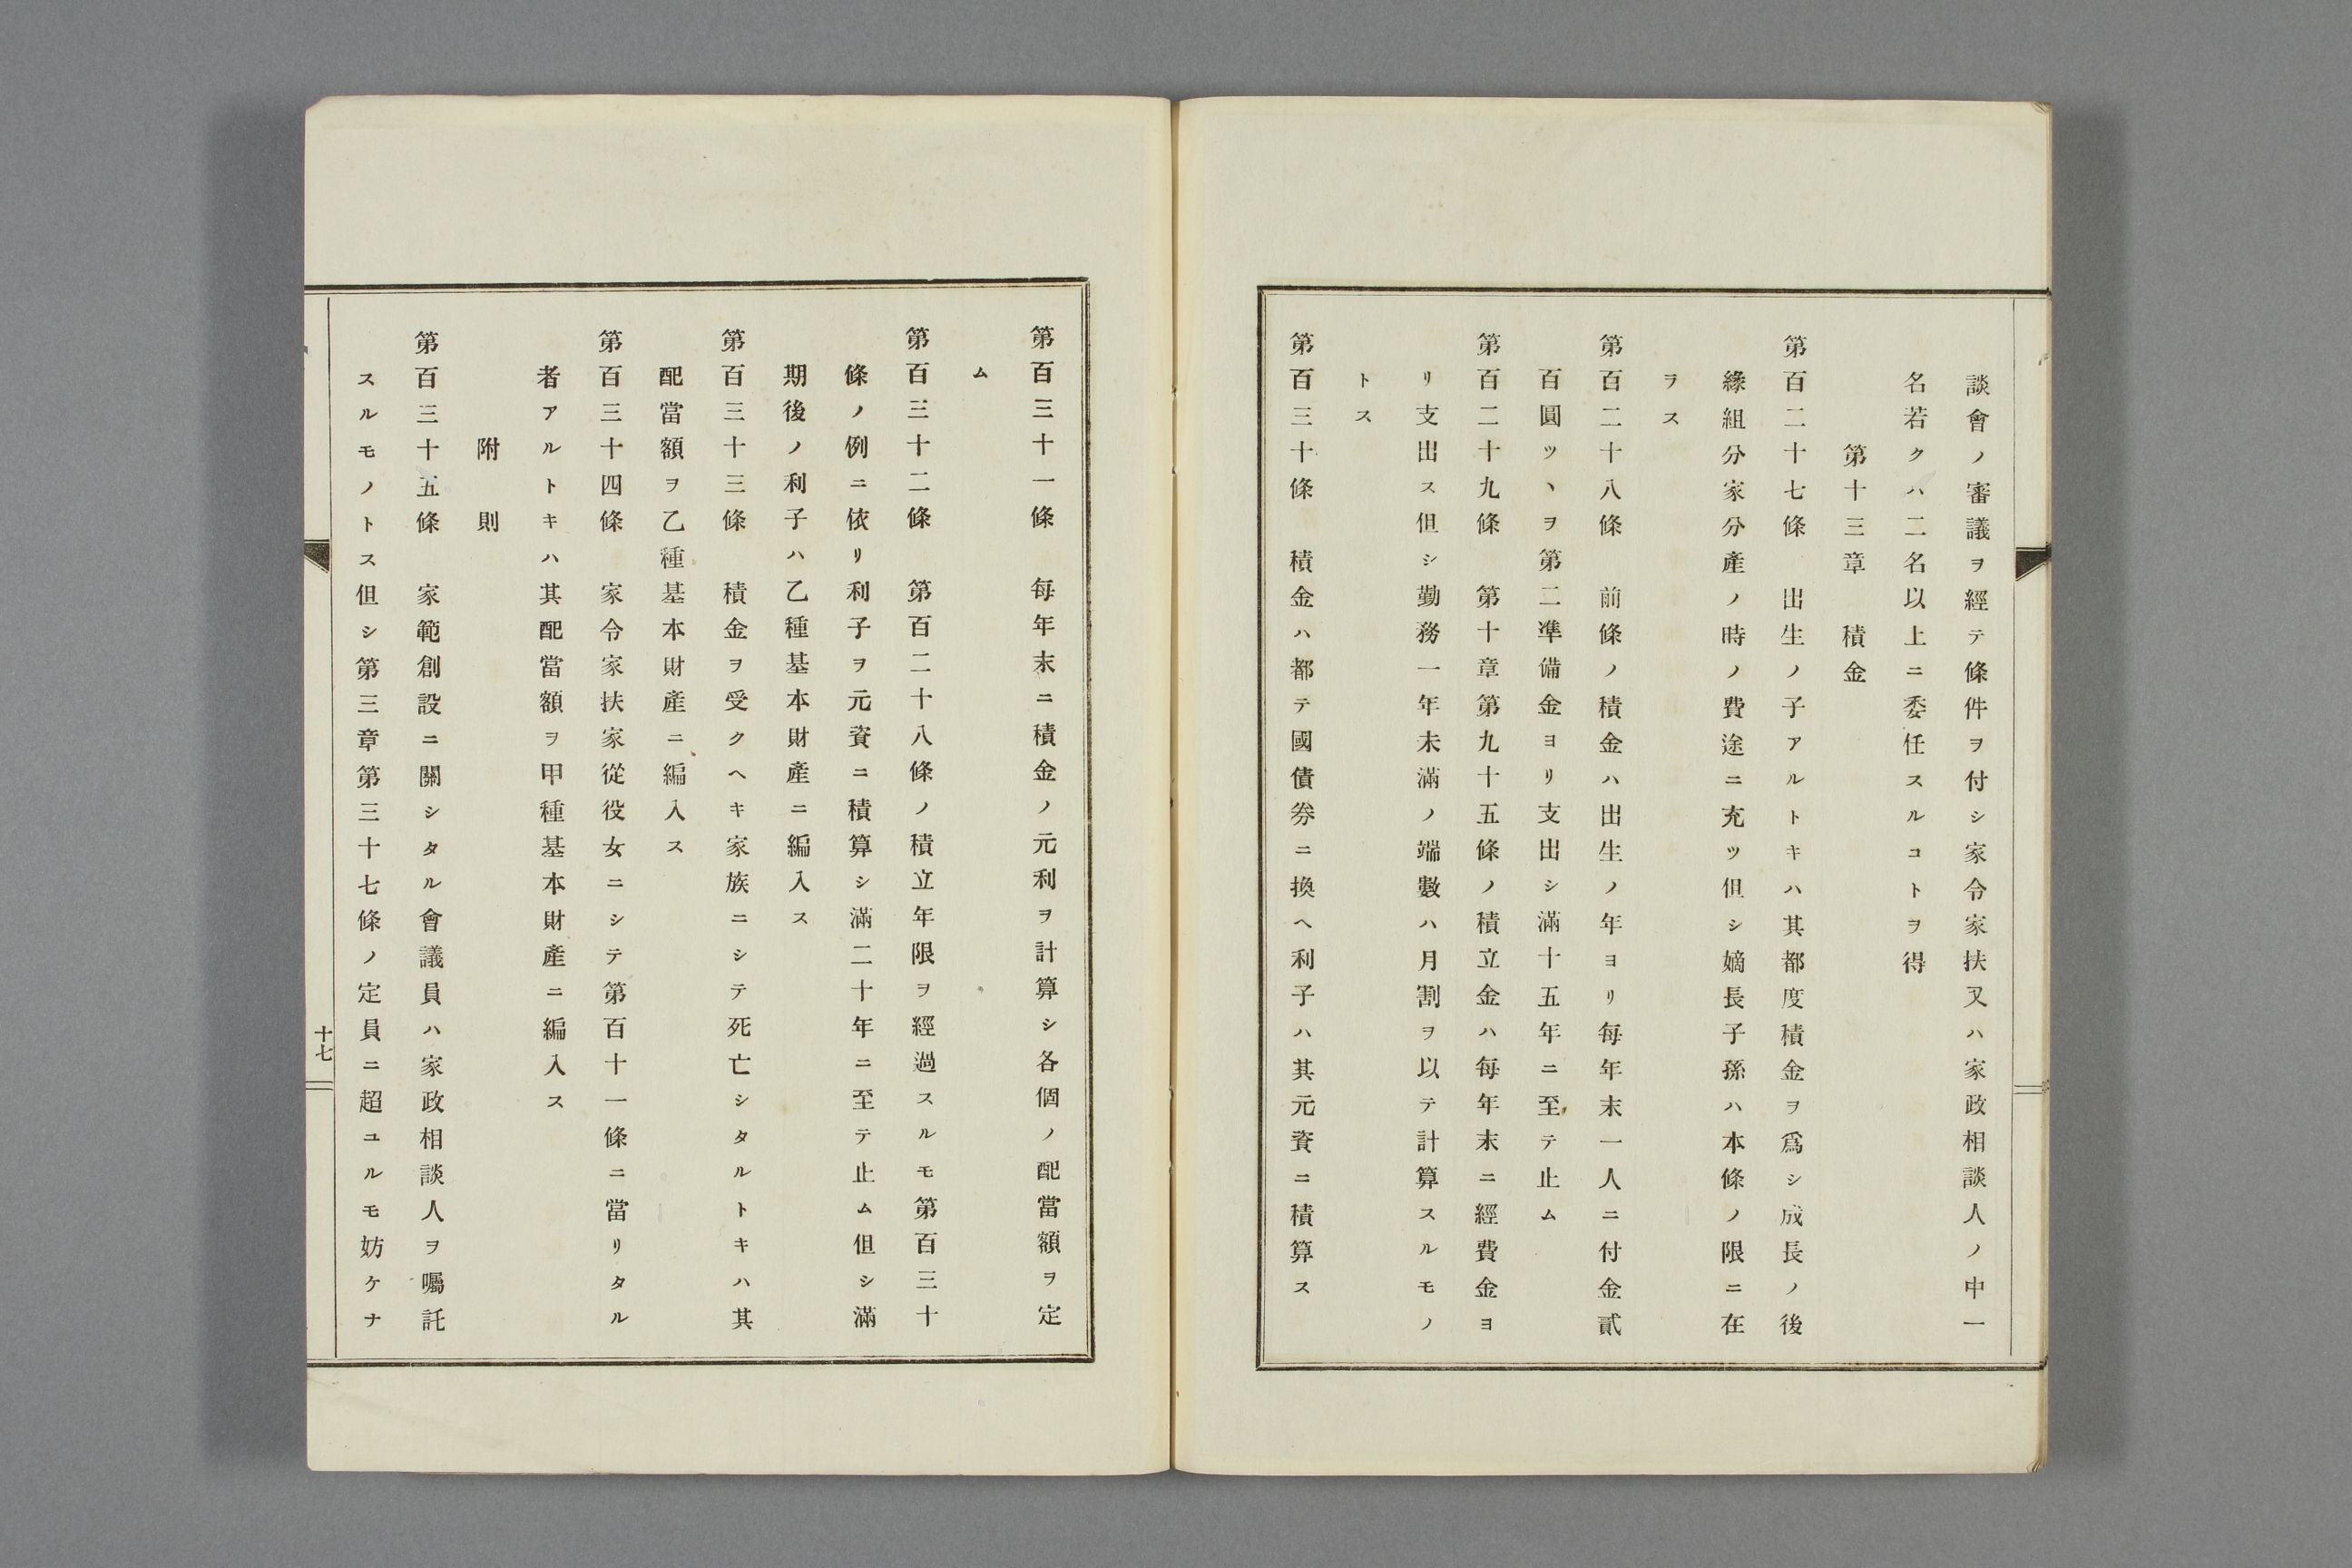 談會ノ審議ヲ經テ條件ヲ付シ家令家扶又ハ家政相談人ノ中一
名若クハ二名以上ニ委任スルコトヲ得
第十三章　積金
第百二十七條　出生ノ子アルトキハ其都度積金ヲ爲シ成長ノ後
緣組分家分產ノ時ノ費途ニ充ツ但シ嫡長子孫ハ本條ノ限ニ在
ヲス
第百二十八條　前條ノ積金ハ出生ノ年ヨリ每年末一人ニ付金貳
百圓ツヽヲ第二準備金ヨリ支出シ滿十五年ニ至テ止ム
第百二十九條　第十章第九十五條ノ積立金ハ每年末ニ經費金ヨ
リ支出ス但シ勤務一年未滿ノ端數ハ月割ヲ以テ計算スルモノ
トス
第百三十條　積金ハ都テ國債券ニ換ヘ利子ハ其元資ニ積算ス
第百三十一條　每年末ニ積金ノ元利ヲ計算シ各個ノ配當額ヲ定
ム
第百三十二條　第百二十八條ノ積立年限ヲ經過スルモ第百三十
條ノ例ニ依リ利子ヲ元資ニ積算シ滿二十年ニ至テ止ム但シ滿
期後ノ利子ハ乙種基本財產ニ編入ス
第百三十三條　積金ヲ受クヘキ家族ニシテ死亡シタルトキハ其
配當額ヲ乙種基本財產ニ編入ス
第百三十四條　家令家扶家從役女ニシテ第百十一條ニ當リタル
者アルトキハ其配當額ヲ甲種基本財產ニ編入ス
附則
第百三十五條　家範創設ニ關シタル會議員ハ家政相談人ヲ囑託
スルモノトス但シ第三章第三十七條ノ定員ニ超ユルモ妨ケナ
十七